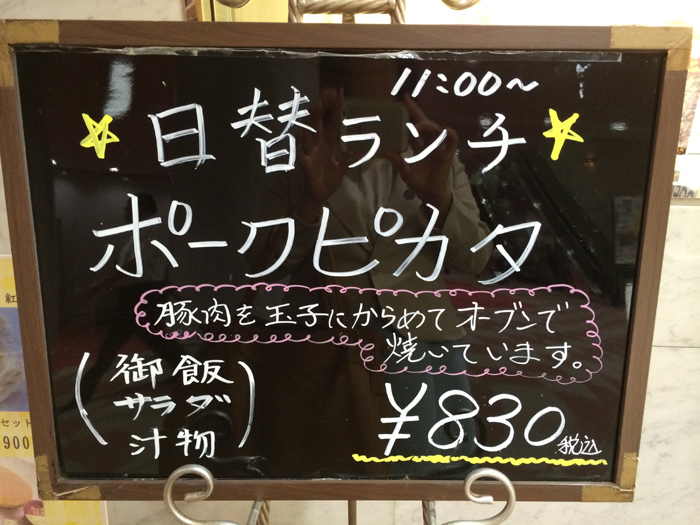 11:00〜
日替ランチ
ポークピカタ
豚肉を玉子にからめてオーブンで
焼いています。
(御飯
サラダ
汁物)
¥830税込
紅
セット
900